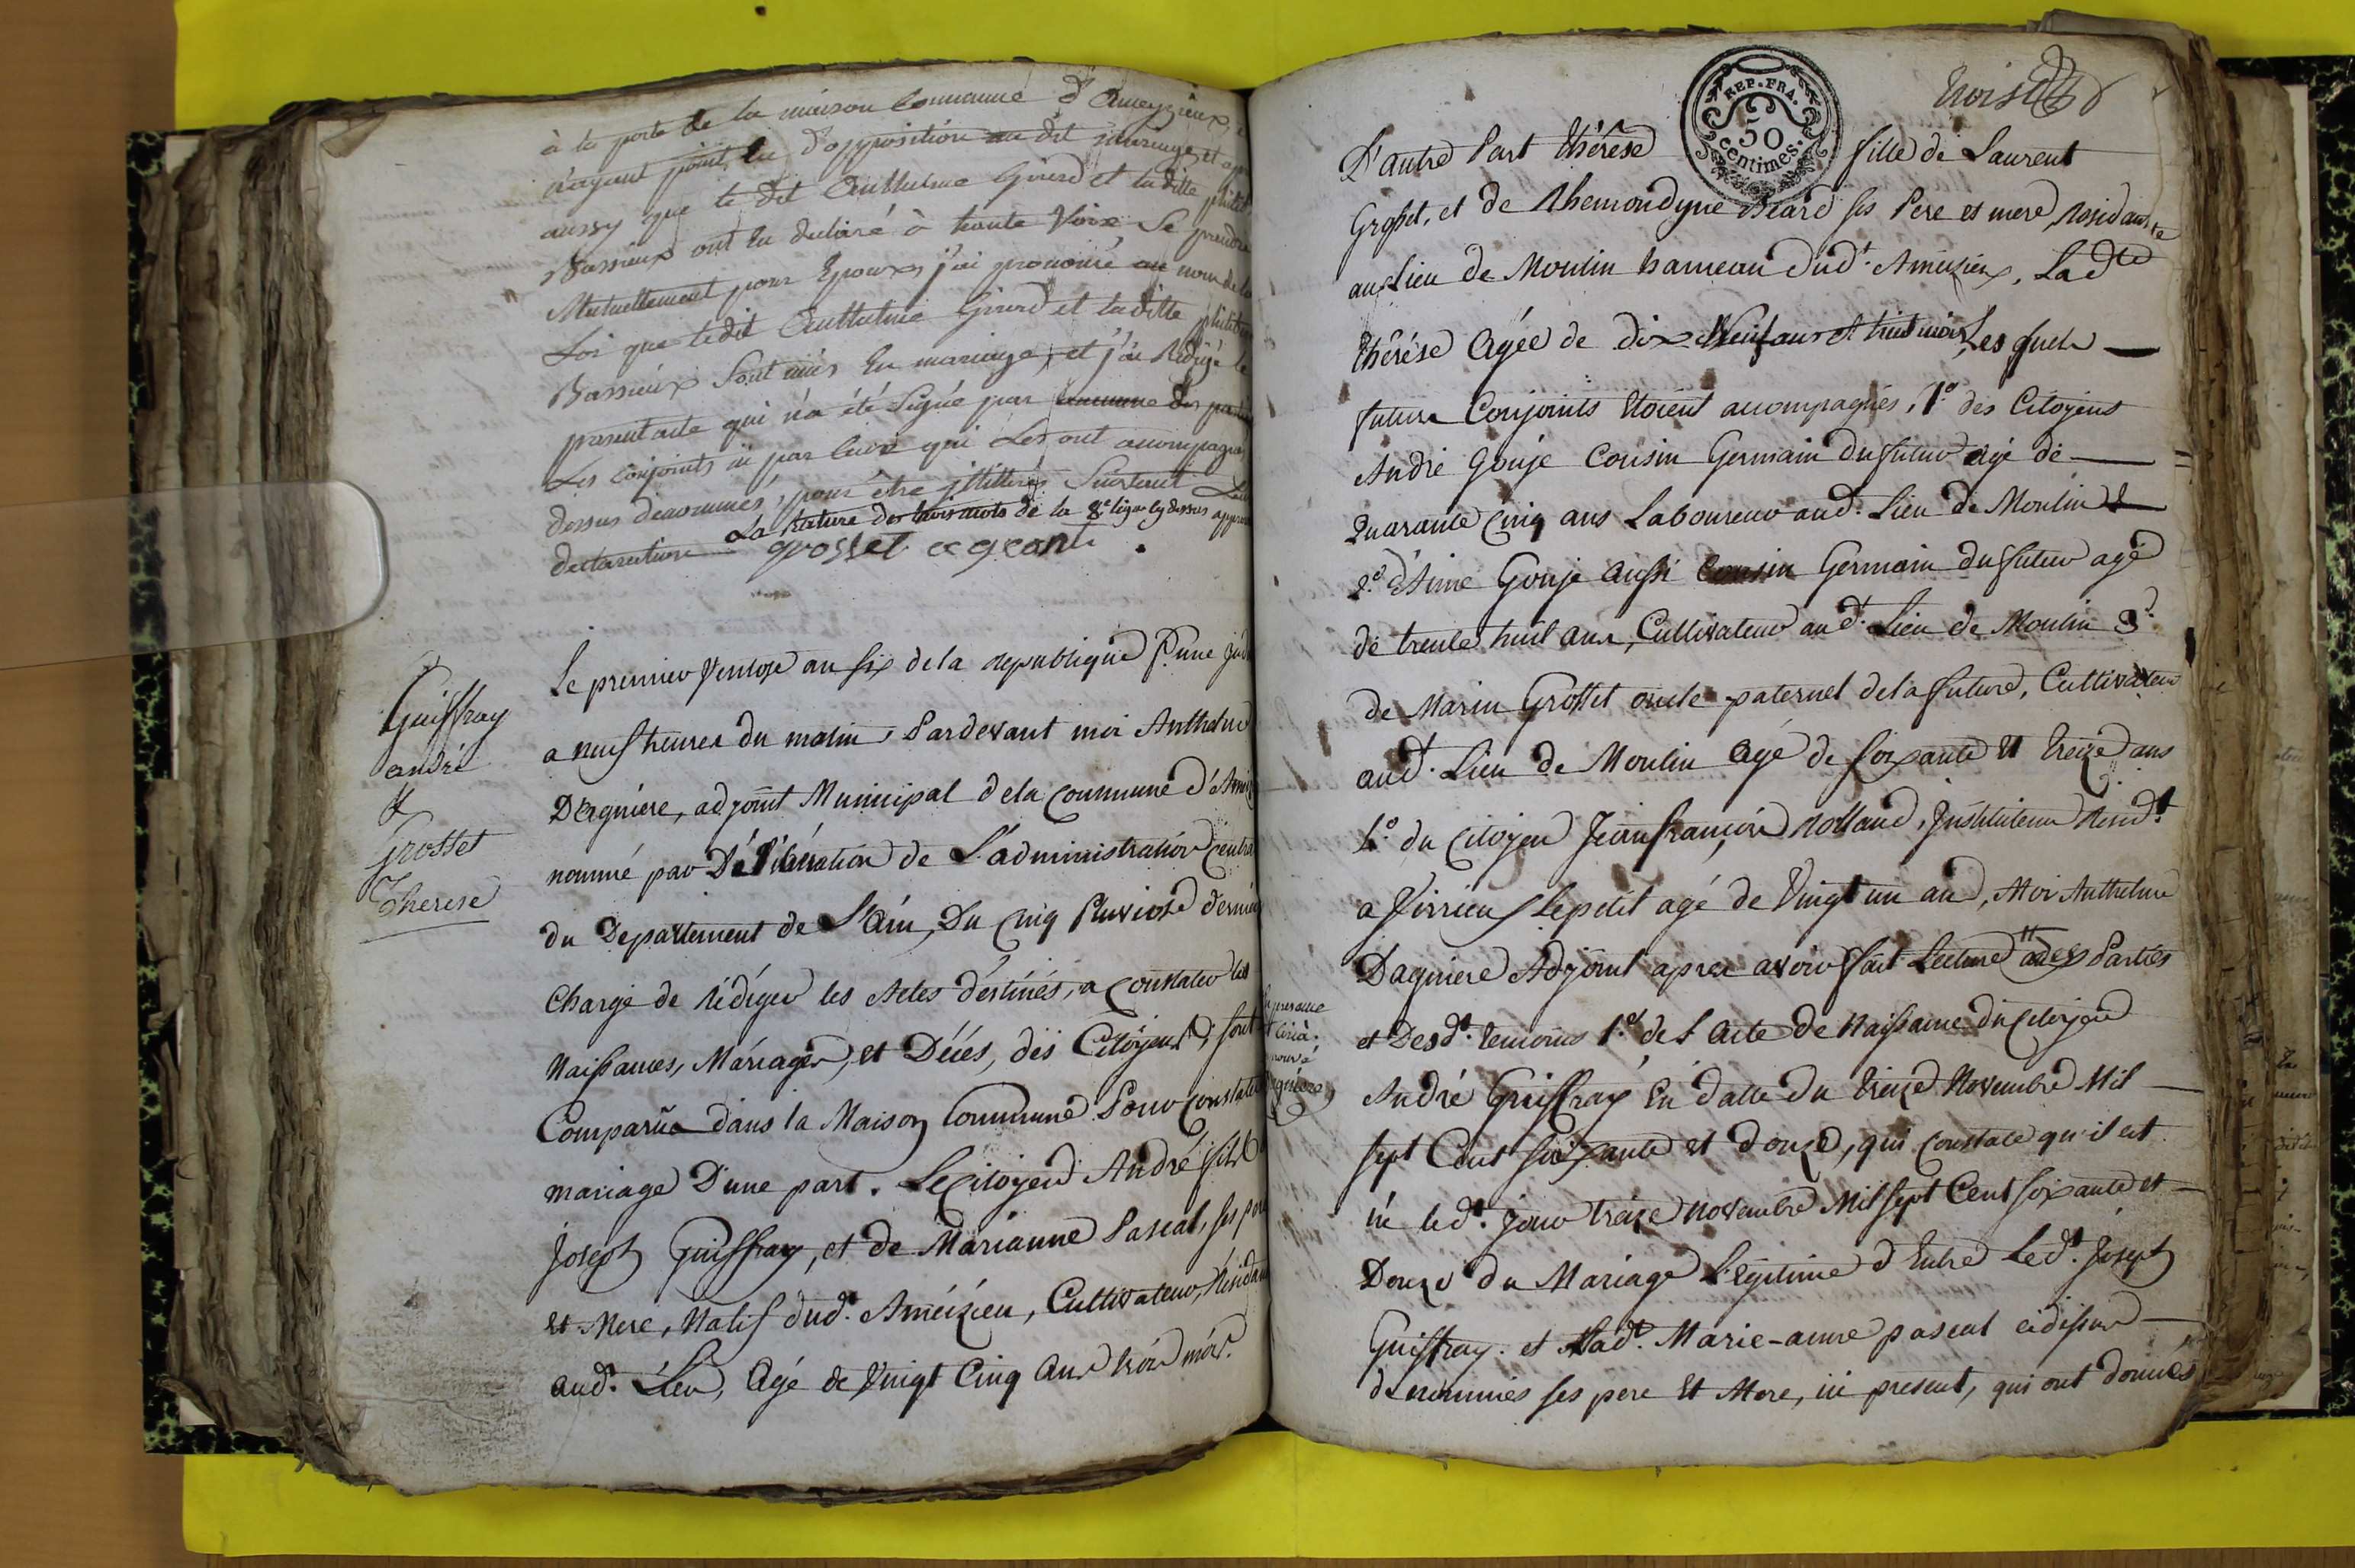 à la porte de la maison Commune d'Ameyzieux,
n'ayant point eu d'opposition au dit mariage, et
aussy que le dit Anthelme Girerd et la ditte
Bassieux ont eu declaré à haute voix Se prendre
Mutuellement pour Epoux, j'ai prononcé au nom de la
Loi que ledit Anthelme Girerd et laditte
Bassieux Sont unis En mariage, et j'ai Redigé le
present acte qui n'a été Signé par aucune des
Les conjoints ni par ceux qui Les ont accompagné
dessus denommés, pour être illitteres Suivant Leur
declaration La rature des trois mots de la 8e ligne cy dessus
grosset agent
Guiffray
andré
&
Grosset
Therese
Le premier Ventose an six de la republique
a neuf heures du matin, Pardevant moi Anthelme
Dagniere, adjoint Municipal de la Commune
nommé par Déliberation de L'administration Centra
du Departement de L'Ain, Du Cinq Pluviose dernier
Chargé de rédiger les Actes déstinés, a Constater les
Naissances, Mariages, et Décés, des Citoyens, sont
Comparûs dans la Maison Commune Pour Constater
mariage D'une part. Le Citoyen André fils
Joseph Guiffray, et de Marianne Pascal, ses pere
et Mere, Natif dud. Améizieu, Cultivateur, Résidant
aud. Lieu, Agé de Vingt Cinq Ans trois mois.
REP. FRA.
50
centimes.
D'autre Part thérèse fille de Laurent
Grosset, et de Rhemondyne Béard ses Pere et mere, residants
au Lieu de Moulin hameau dud.t Ameizieu, Ladte
thérése Agée de dix Neuf ans et huit mois, Les quels
futurs Conjoints étoient accompagnés, 1.º des Citoyens
André Gouje Cousin Germain du futur agé de
Quarante Cinq ans Laboureur aud. Lieu de Moulin
2.º d'Aimé Gouje aussi Cousin Germain du futur agé
de trente huit ans, Cultivateur aud.t Lieu de Moulin 3.º
de Marin Grosset oncle paternel de la future, Cultivateur
aud.t Lieu de Moulin Agé de soixante et treize ans
4.º du Citoyen Jeanfrançois Rolland, Instituteur Resid.t
a Virrieu Lepetit agé de Vingt un an, Moi Anthelme
Dagniere Adjoint apres avoir fait Lecture des Parties
et Desd.ts temoins 1.º de L'Acte de Naissance du Citoyen
André Guiffray En datte du treize Novembre Mil
sept Cent soixante et douze, qui constate qu'il est
né led.t jour treize novembre Mil sept Cent soixante et
Douze du Mariage Légitime d'Entre Led.t Joseph
Guiffray. et Lad.te Marie-anne pascal cidessus
denommés ses pere et Mere, ici present, qui ont donnés